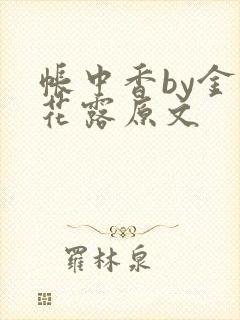 帳中香by金
花露原文
羅林泉